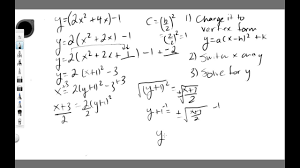 y=(2x²+4x)-1
y=2(x²+2x)-1
y=2(x²+2x+1)-1+-2
y=2(x+1)²-3
x=2(y+1)²-3+3
x+3/2=2(y+1)²/2
C=(b/2)²
(2/2)²=1
1) Change it to vertex form
y=a(x-h)²+k
2) Switch x and y
3) Solve for y
√(y+1)²=±√x+3/2
y+1-1=±√x+3/2-1
y